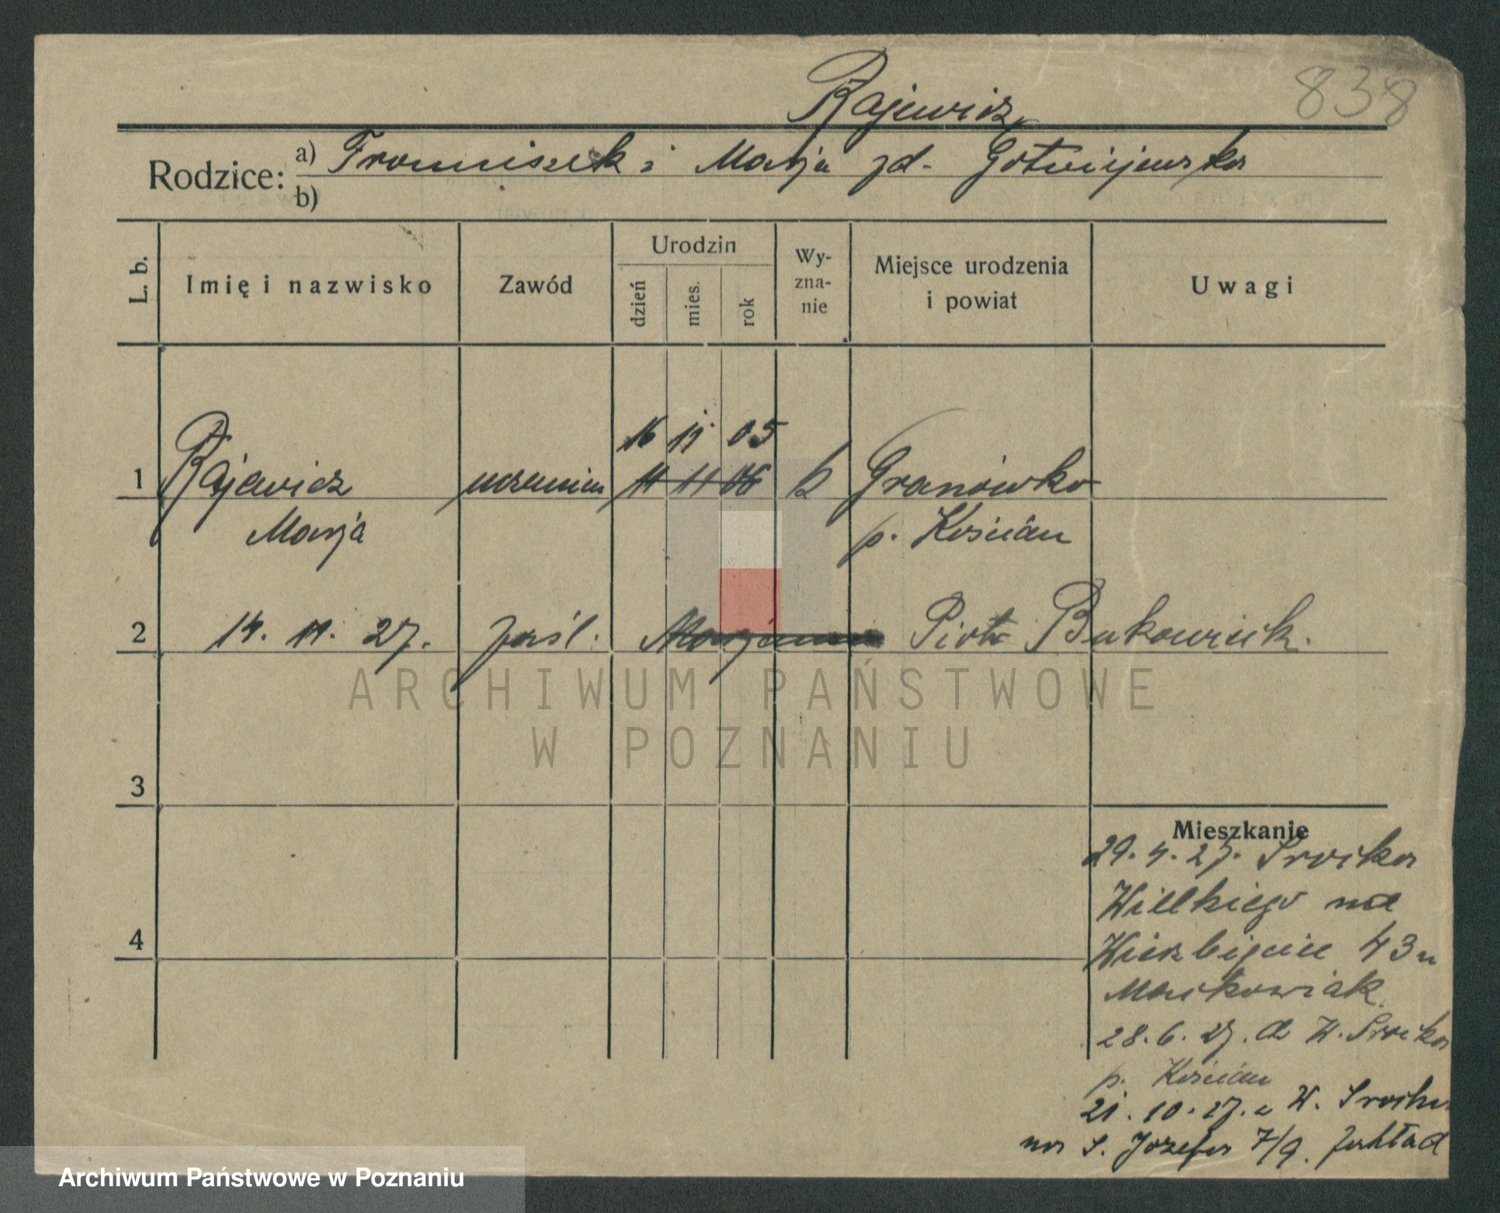 838
Rajewicz
Rodzice: a) Franciszek i Marja zd.
b)
L. b.
Imię i nazwisko
Zawód
Urodzin
dzień
mies.
rok
Wy-
zna-
nie
Miejsce urodzenia
i powiat
Uwagi
16 11 05
1 Rajewicz uczenica 11 11 06 k Granówko
Marja p. Kościan
2 14. 11. 27. zaśl. Piotr Bukowiecki.
ARCHIWUM PAŃSTWOWE
W POZNANIU
3
Mieszkanie
29. 4. 27. Srocko
Wielkiego na
4 Wierzbięcice 43 u
Markowiak.
28. 6. 27. do W. Srocko
p. Kościan
21. 10. 27. z W. Srocko
na S. Józefa 7/9. Zakład
Archiwum Państwowe w Poznaniu